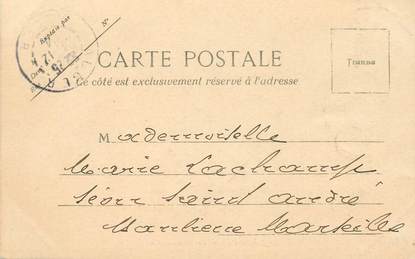 N°
CARTE POSTALE
Ce côté est exclusivement réservé à l'adresse
Mademoiselle
Marie Lachamp
Saint André
Banlieue Marseille